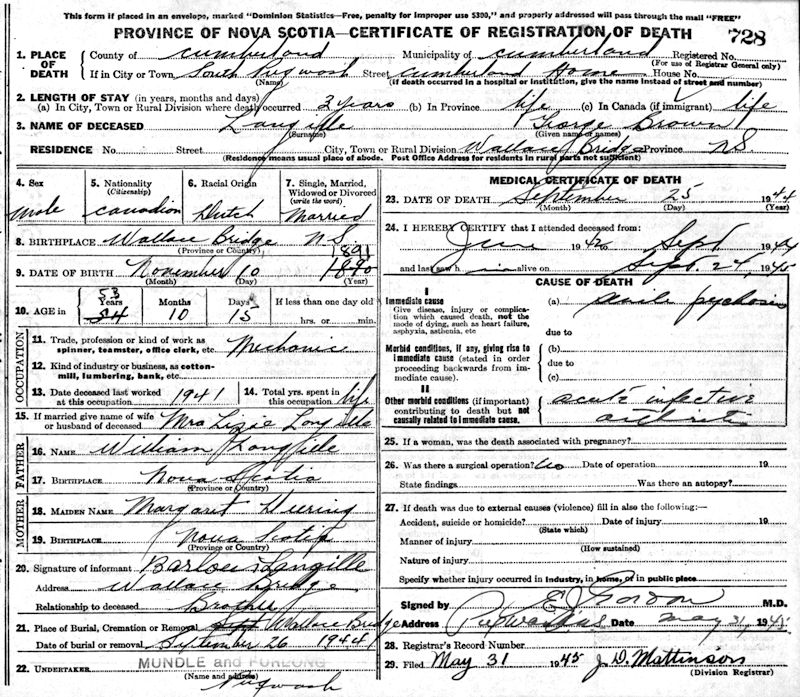 This form if placed in an envelope, marked "Dominion Statistics—Free, penalty for improper use $300," and properly addressed will pass through the mail "FREE"
PROVINCE OF NOVA SCOTIA—CERTIFICATE OF REGISTRATION OF DEATH 728
1. PLACE OF DEATH County of Cumberland Municipality of Cumberland Registered No.
(For use of Registrar General only)
If in City or Town South Pugwash Street Cumberland Home House No.
(Name) (If death occurred in a hospital or institution, give the name instead of street and number)
2. LENGTH OF STAY (in years, months and days)
(a) In City, Town or Rural Division where death occurred 2 years (b) In Province life (c) In Canada (if immigrant) life
3. NAME OF DECEASED Langille George Brown
(Surname) (Given name or names)
RESIDENCE No. Street City, Town or Rural Division Wallace Bridge Province N.S.
(Residence means usual place of abode. Post Office Address for residents in rural parts not sufficient)
4. Sex 5. Nationality (Citizenship) 6. Racial Origin 7. Single, Married, Widowed or Divorced (write the word)
Male Canadian Dutch Married
8. BIRTHPLACE Wallace Bridge N.S.
(Province or Country)
1891
9. DATE OF BIRTH November 10 1890
(Month) (Day) (Year)
10. AGE in 53 Years Months Days If less than one day old
54 10 15 hrs. or min.
OCCUPATION
11. Trade, profession or kind of work as spinner, teamster, office clerk, etc. Mechanic
12. Kind of industry or business, as cotton-mill, lumbering, bank, etc.
13. Date deceased last worked at this occupation 1941 14. Total yrs. spent in this occupation life
15. If married give name of wife or husband of deceased Mrs Lizie Langille
FATHER
16. NAME William Langille
17. BIRTHPLACE Nova Scotia
(Province or Country)
MOTHER
18. MAIDEN NAME Margaret
19. BIRTHPLACE Nova Scotia
(Province or Country)
20. Signature of informant Langille
Address Wallace Bridge
Relationship to deceased Brother
21. Place of Burial, Cremation or Removal Wallace Bridge
Date of burial or removal September 26 1944
22. UNDERTAKER MUNDLE and FURLONG
(Name and address)
Pugwash
MEDICAL CERTIFICATE OF DEATH
23. DATE OF DEATH September 25 1944
(Month) (Day) (Year)
24. I HEREBY CERTIFY that I attended deceased from:
June 1942 to Sept 1944
and last saw h im alive on Sept. 24, 1945
CAUSE OF DEATH
I
Immediate cause
Give disease, injury or complication which caused death, not the mode of dying, such as heart failure, asphyxia, asthenia, etc
(a) psychosis
due to
Morbid conditions, if any, giving rise to immediate cause (stated in order proceeding backwards from immediate cause).
(b)
due to
(c)
II
Other morbid conditions (if important) contributing to death but not causally related to immediate cause.
acute infective
arthritis
25. If a woman, was the death associated with pregnancy?
26. Was there a surgical operation? No Date of operation 19
State findings Was there an autopsy?
27. If death was due to external causes (violence) fill in also the following:—
Accident, suicide or homicide? Date of injury 19
(State which)
Manner of injury
(How sustained)
Nature of injury
Specify whether injury occurred in industry, in home, or in public place
Signed by E J Gordon M.D.
Address Pugwash N.S. Date May 31, 1945
28. Registrar's Record Number
29. Filed May 31 1945 J. D. Mattinson
(Division Registrar)